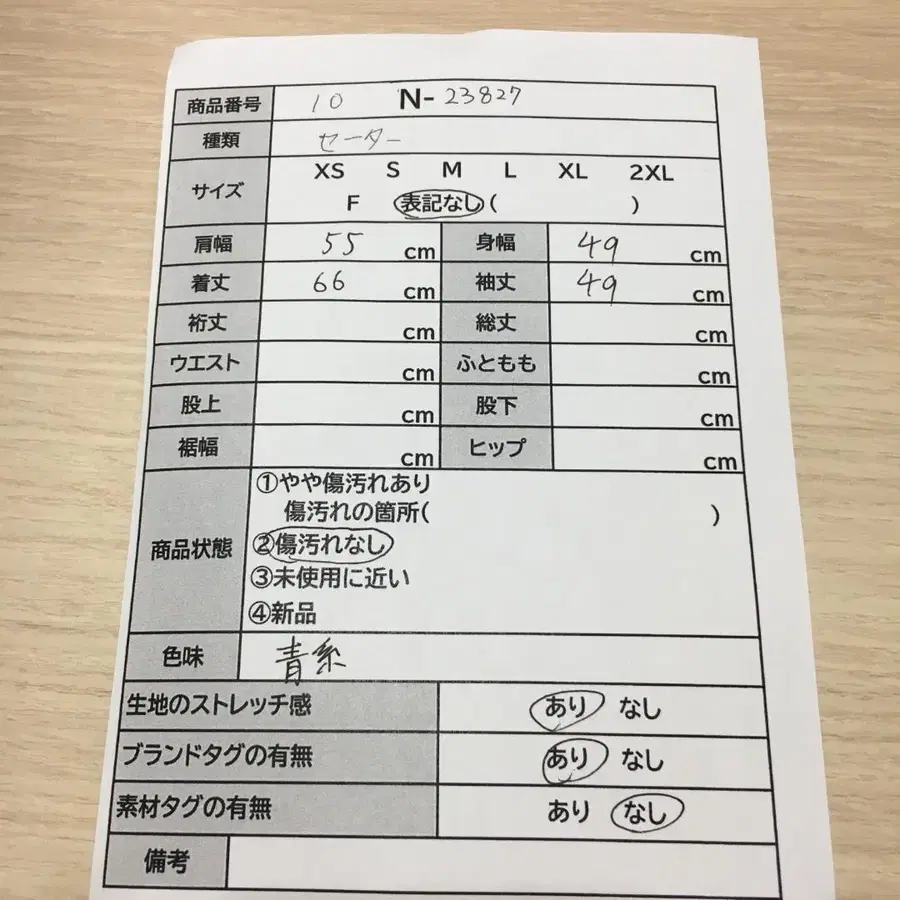 商品番号 10 N-23827
種類 セーター
サイズ XS S M L XL 2XL
F 表記なし( )
肩幅 55 cm 身幅 49 cm
着丈 66 cm 袖丈 49 cm
裄丈 cm 総丈 cm
ウエスト cm ふともも cm
股上 cm 股下 cm
裾幅 cm ヒップ cm
商品状態 ①やや傷汚れあり
傷汚れの箇所( )
②傷汚れなし
③未使用に近い
④新品
色味 青系
生地のストレッチ感 あり なし
ブランドタグの有無 あり なし
素材タグの有無 あり なし
備考